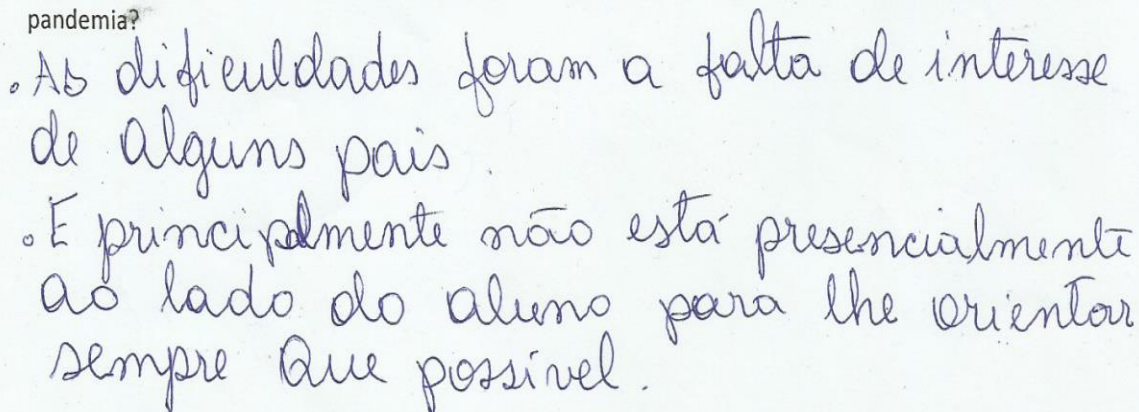 pandemia?
. As dificuldades foram a falta de interesse
de alguns pais.
. E principalmente não está presencialmente
ao lado do aluno para lhe orientar
sempre que possível.